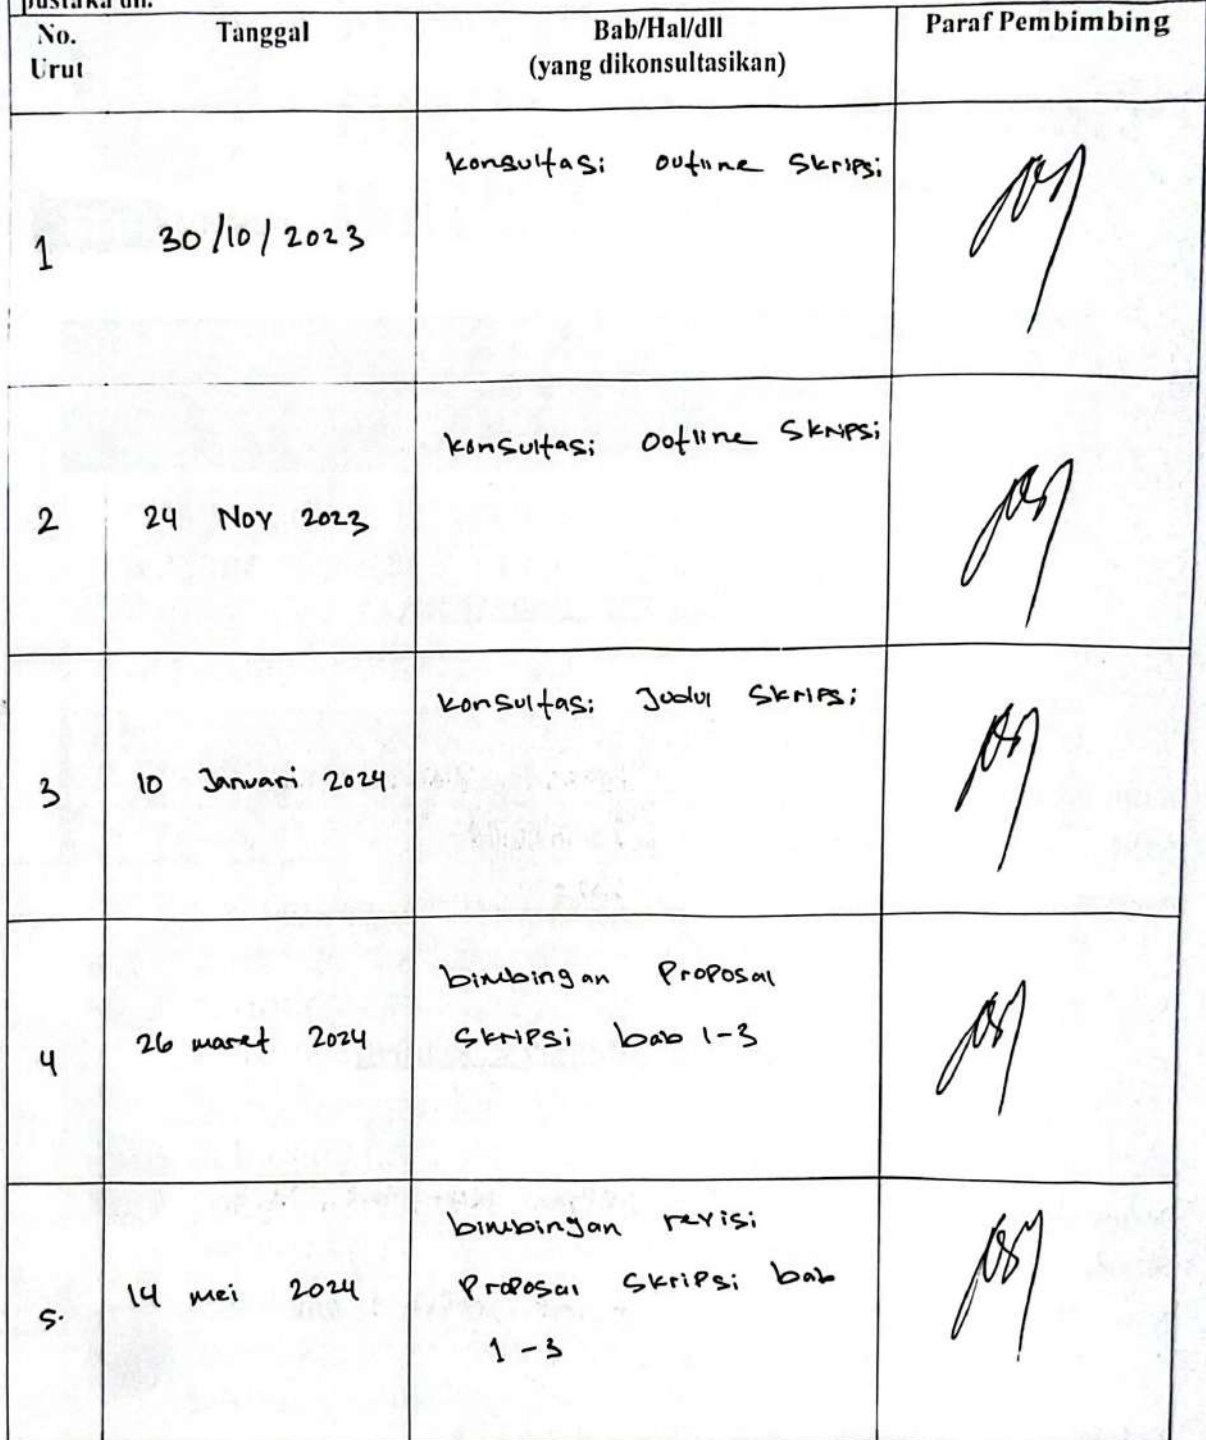 pustaka dll.
No. Urut | Tanggal | Bab/Hal/dll (yang dikonsultasikan) | Paraf Pembimbing
1 | 30/10/2023 | konsultasi outline Skripsi
2 | 24 Nov 2023 | konsultasi outline Skripsi
3 | 10 Januari 2024 | konsultasi Judul Skripsi
4 | 26 maret 2024 | bimbingan Proposal
Skripsi bab 1-3
5. | 14 mei 2024 | bimbingan revisi
Proposal Skripsi bab
1-3